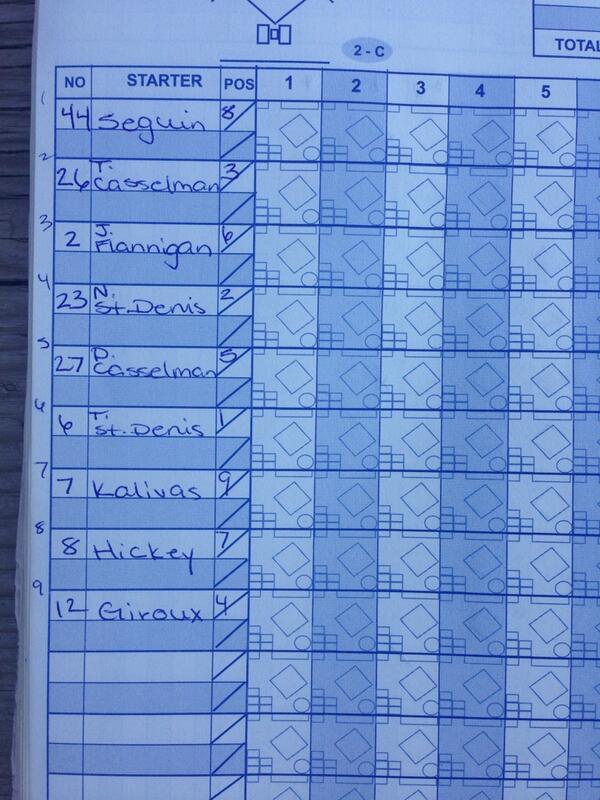 2 - C
TOTAL
NO STARTER POS 1 2 3 4 5
1
44 Seguin 8
2
26 T. Casselman 3
3
2 J. Flannigan 6
4
23 N. St.Denis 2
5
27 D. Casselman 5
6
6 T. St.Denis 1
7
7 Kalivas 9
8
8 Hickey 7
9
12 Giroux 4